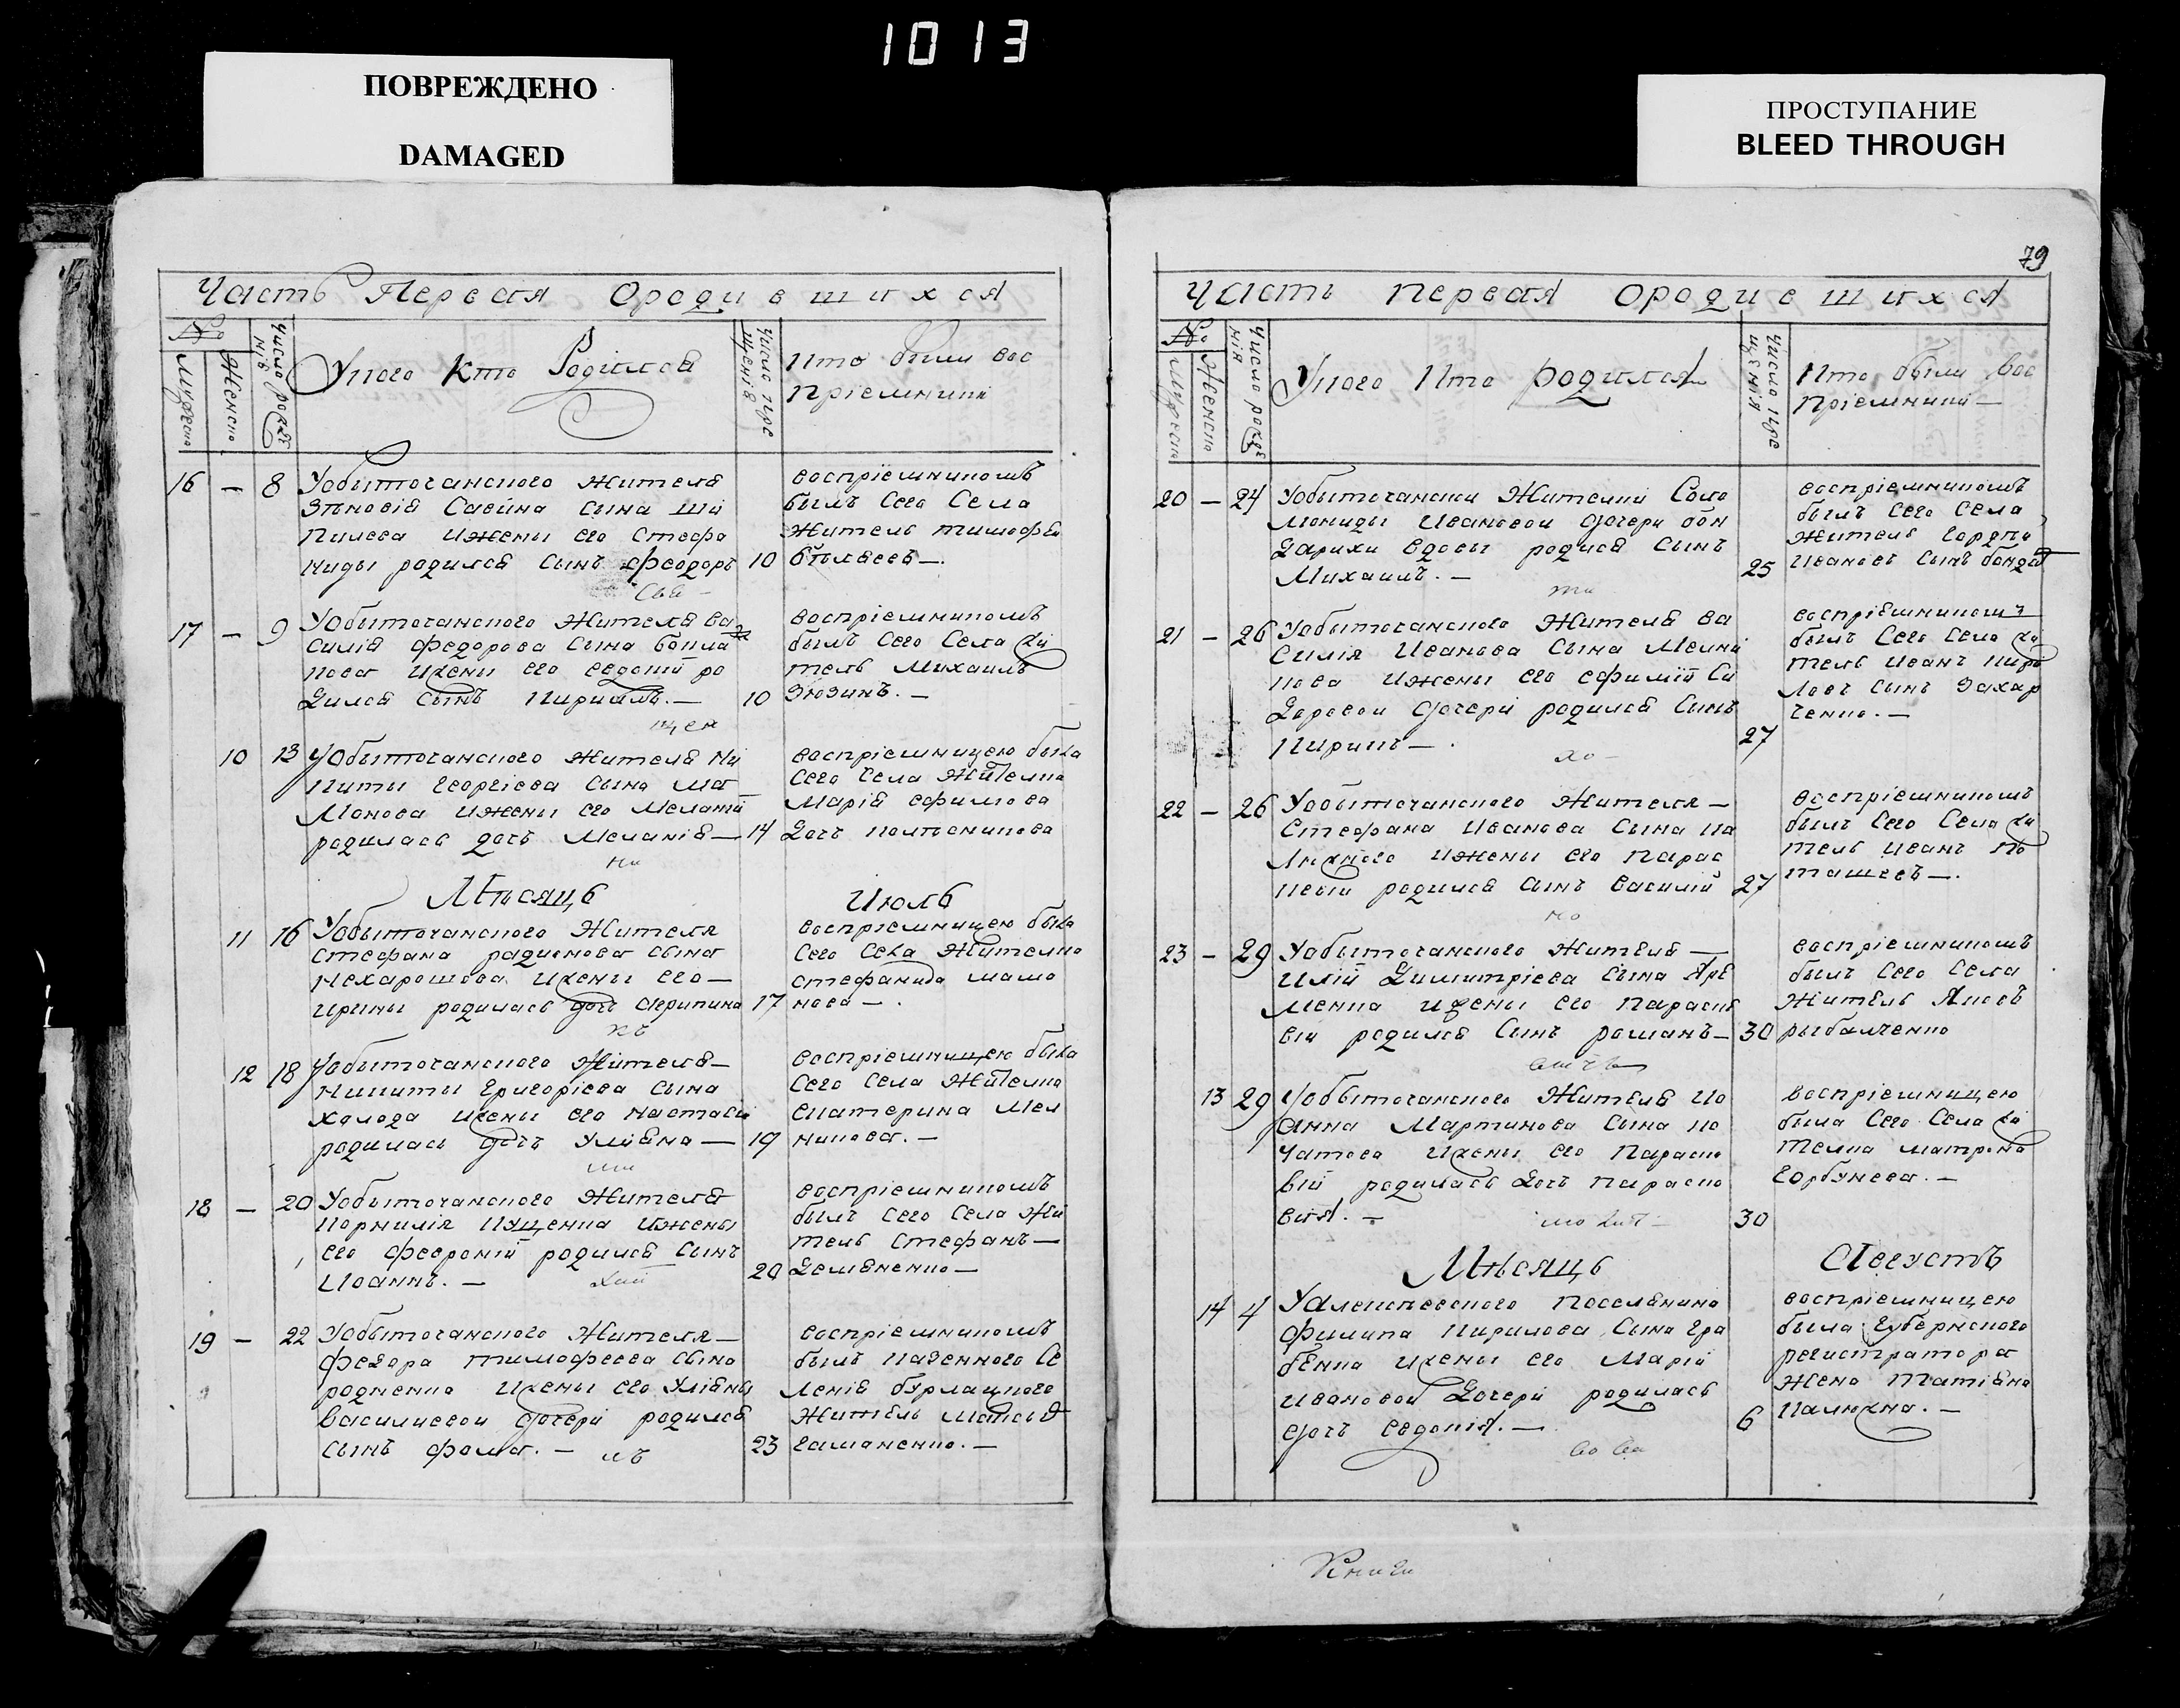 1013
ПОВРЕЖДЕНО
DAMAGED
ПРОСТУПАНИЕ
BLEED THROUGH
Часть Первая Ородившихся
№
Мужеска
Женска
Число рожде
нія
Укого Кто Родился
Число кре
щенія
Кто были вос
пріемники
16 – 8 Уобыточанского Жителя
Зѣновія Савина Сына
ИженЫ его Стефа
ниды родился Сынъ Феодоръ 10
воспріемникомъ
былъ Сего Села
Житель тимофѣи
17 – 9 Уобыточанского Жителя ва
силія Федорова Сына
Ижены его евдокіи ро
дился Сынъ Кириллъ. – 10
воспріемникомъ
былъ Сего Села жи
тель Михаилъ
Зюзинъ. –
10 13 Уобыточанского Жителя Ни
киты Георгіева Сына ма
монова Ижены его Меланіи
родилась дочь Меланія – 14
воспріемницею была
Сего Села Жителка
Марія ефимова
Дочь
Мѣсяцъ Июль
11 16 Уобыточанского Жителя
Стефана радионова Сына
Нехарошова Ижены его –
ирины родилась дочь Акрипина 17
воспріемницею была
Сего Села Жителка
стефанида мамо
нова – .
12 18 Уобыточанского Жителя –
Никиты Григоріева Сына
холода Ижены его Настасіи
родилась дочь Уліяна – 19
воспріемницею была
Сего Села Жителка
екатерина Мел
никова. –
18 – 20 Уобыточанского Жителя
Корнилія Куценка Ижены
его Февроніи родился Сынъ
Иоаннъ. – 20
воспріемникомъ
былъ Сего Села Жи
тель Стефанъ –
Демяненко –
19 – 22 Уобыточанского Жителя –
Федора тимофеева Сына
родненка Ижены его Уліяны
василиевои дочери родился
Сынъ фома. – 23
воспріемникомъ
былъ Казенного Се
ленія бурлацкого
Житель
гаманенко. –
79
Часть Первая Ородившихся
№
Мужеска
Женска
Число рожде
нія
Укого Кто родился
Число кре
щенія
Кто были вос
пріемники –
20 – 24 Уобыточанскои Жителки Соло
мониды Ивановои дочери бон
дарихи вдовы родился Сынъ
Михаилъ. – 25
воспріемникомъ
былъ Сего Села
Житель
Ивановъ Сынъ
21 – 26 Уобыточанского Жителя ва
силія Иванова Сына Мелни
кова Ижены его ефиміи Си
доровои дочери родился Сынъ
Кирикъ – . 27
воспріемникомъ
былъ Сего Села жи
тель Иванъ Кири
ловъ Сынъ Захар
ченко. –
22 – 26 Уобыточанского Жителя –
Стефана Иванова Сына Ка
люжного Ижены его Парас
кевіи родился Сынъ василій 27
воспріемникомъ
былъ Сего Села жи
тель Иванъ По
ташевъ – .
23 – 29 Уобыточанского Жителя –
Иліи Димитріева Сына Яре
менка Ижены его Параске
віи родился Сынъ романъ – 30
воспріемникомъ
былъ Сего Села
Житель Яковъ
рыбалченко
13 29 Уобыточанского Жителя Ио
анна Мартинова Сына Ко
чатова Ижены его Параско
віи родилась Дочь Параско
вия. – 30
воспріемницею
была Сего Села жи
телка матрона
Горбунова. –
Мѣсяцъ Августъ
14 4 Поселянина
филипа Кирилова Сына Гра
бенка Ижены его Маріи
Ивановой Дочери родилась
дочь евдокія. – 6
воспріемницею
была Губернского
регистратора
Жена татіяна
Калюжна. –
Книги